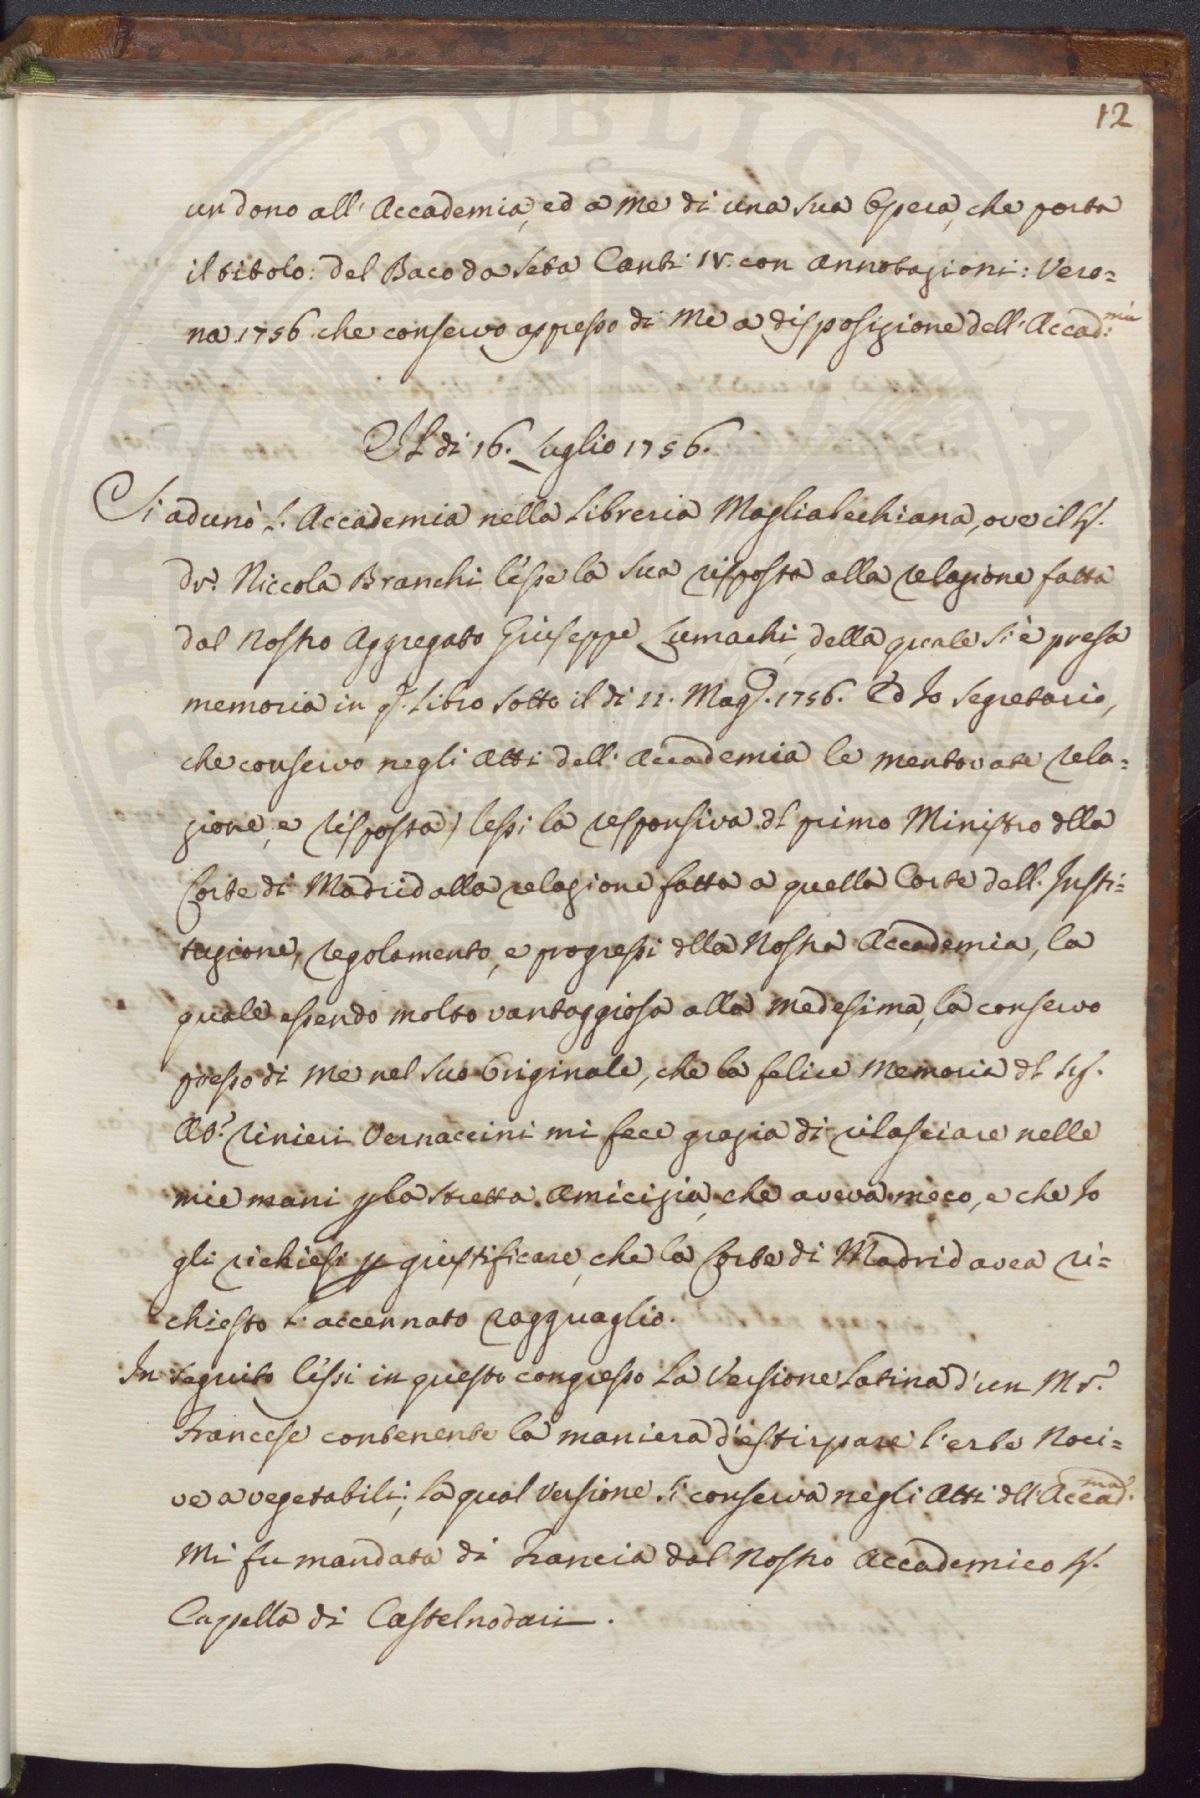 12
un dono all' Accademia, ed a me di una sua Opera, che porta
il titolo: del Baco da Seta Canti IV. con annotazioni: Vero=
na 1756 che conservo appresso di Me a disposizione dell' Accad:mia
Il di 16. Luglio 1756.
Si adunò l' Accademia nella Libreria Magliabechiana, ove il Sr.
Dr. Niccola Branchi lesse la sua risposta alla relazione fatta
dal Nostro Aggregato Giuseppe Lumachi, della quale si è presa
memoria in qo. Libro sotto il di 11. Mago. 1756. Ed Io Segretario,
che conservo negli Atti dell' Accademia le mentovate rela=
zione, e risposta) lessi la responsiva dl primo Ministro dlla
Corte di Madrid alla relazione fatta a quella Corte dell' Insti=
tuzione, regolamento, e progressi dlla Nostra Accademia, la
quale essendo molto vantaggiosa alla medesima, la conservo
presso di me nel suo Originale, che la felice Memoria dl Sr.
Ab.e Rinieri Vernaccini mi fece grazia di rilasciare nelle
mie mani p la stretta amicizia, che aveva meco, e che Io
gli richiesi p giustificare, che la Corte di Madrid avea ri=
chiesto l' accennato ragguaglio.
In seguito lessi in questo congresso la Versione Latina d' un Mr.
Francese contenente la maniera d' estirpare l' erbe Noci=
ve a vegetabili; la qual Versione si conserva negli Atti dll' Accad.mia
Mi fu mandata di Francia dal Nostro Accademico Sr.
Cappella di Castelnodari.
PUBLICA